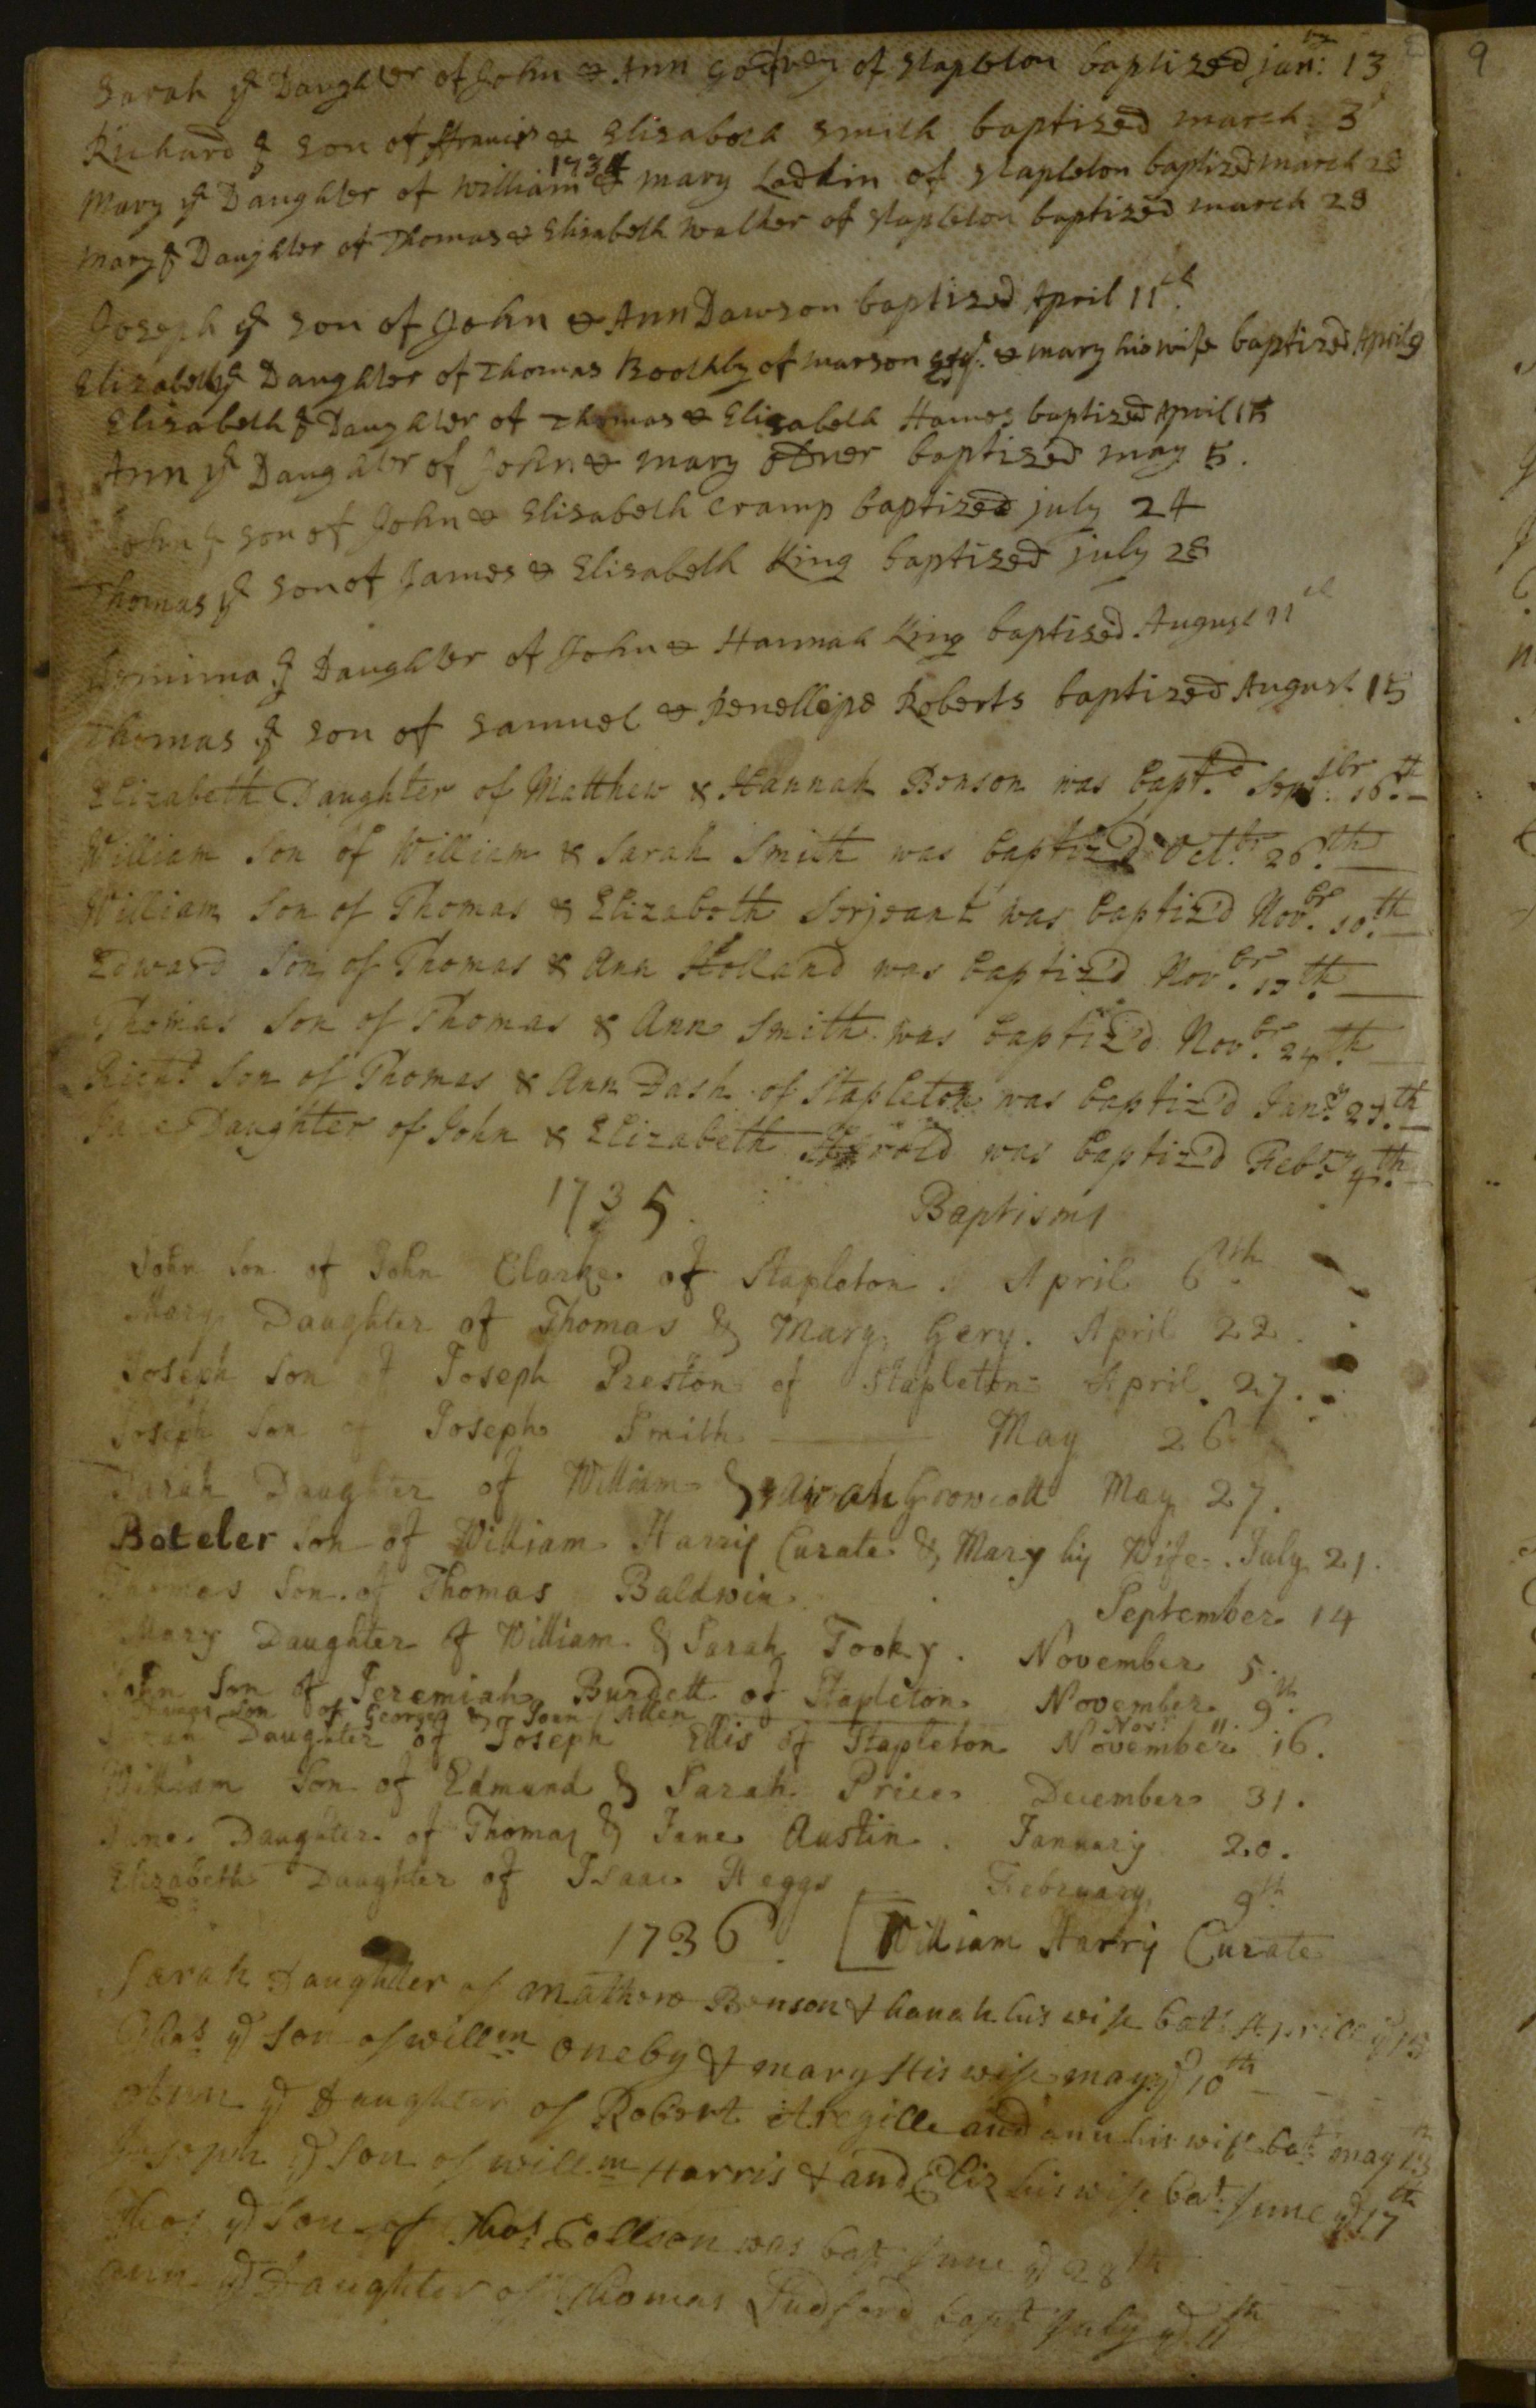 Sarah ye Daughter of John & Ann Godfrey of Stapleton baptized jan: 13
Richard ye son of Francis & Elisabeth Smith baptised march 3
1734
Mary ye Daughter of William & mary Ladkin of Stapleton baptized march 28
Mary ye Daughter of Thomas & Elisabeth Walker of Stapleton baptized march 29
Joseph ye son of John & Ann Dawson baptized April 11th
Elizabeth ye Daughter of Thomas Boothby of marson & mary his wife baptized April 9
Elisabeth ye Daughter of Thomas & Elisabeth Hames baptized April 15
Ann ye Daughter of John & mary baptized may 5.
John ye son of John & Elisabeth Cramp baptized july 24
Thomas ye son of James & Elisabeth King baptized july 28
ye Daughter of John & Hannah King baptised August 11th
Thomas ye son of Samuel & Penellipe Roberts baptized August 15
Elizabeth Daughter of Matthew & Hannah Bonson was bapt.d Septbr. 16.th
William Son of William & Sarah Smith was baptiz'd Octbr 26.th
William Son of Thomas & Elizabeth Serjeant was baptiz'd Novbr. 10.th
Edward Son of Thomas & Ann Holland was baptiz'd Novbr. 17.th
Thomas Son of Thomas & Ann Smith was baptiz'd Novbr. 24.th
Richd Son of Thomas & Ann Dash of Stapleton was baptiz'd Jany 27.th
Jane Daughter of John & Elizabeth was baptiz'd Febry 4.th
1735. Baptisms
John Son of John Clarke of Stapleton. April 6th
Mary Daughter of Thomas & Mary Gery. April 22.
Joseph Son of Joseph Preston of Stapleton April 27.
Joseph Son of Joseph Smith May 26
Sarah Daughter of William & Sarah Growcott May 27.
Boteler Son of William Harris Curate & Mary his Wife. July 21.
Thomas Son of Thomas Baldwin September 14
Mary Daughter of William & Sarah Tooky. November 5.
John Son of Jeremiah Burdett of Stapleton November 9th.
Son of George & Joan Allen Novr 11.
Daughter of Joseph Ellis of Stapleton November 16.
William Son of Edmund & Sarah Price December 31.
Jane Daughter of Thomas & Jane Austin. January 20.
Elizabeth Daughter of Isaac Heggs February 9th
1736. [William Harris Curate
Sarah Daughter of Mathew Benson & hanah his wife bat: Aprill ye 13
Thos ye Son of willm Oneby & mary His wife may ye 10th
Ann ye Daughter of Robort Aregille and ann his wife bat: may 13
Joseph ye Son of willm Harris & and Eliz his wife bat: June ye 17th
Thos ye Son of Thos Collson was bapt June ye 28th
ann ye Daughter of Thomas Ludford bapt July ye 11th